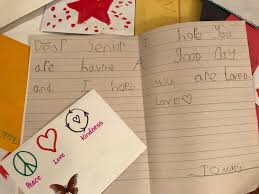 Dear Senior I hope You
are having A good Day
and I hope you are Loved
Love♡
Peace
Love
Kindness